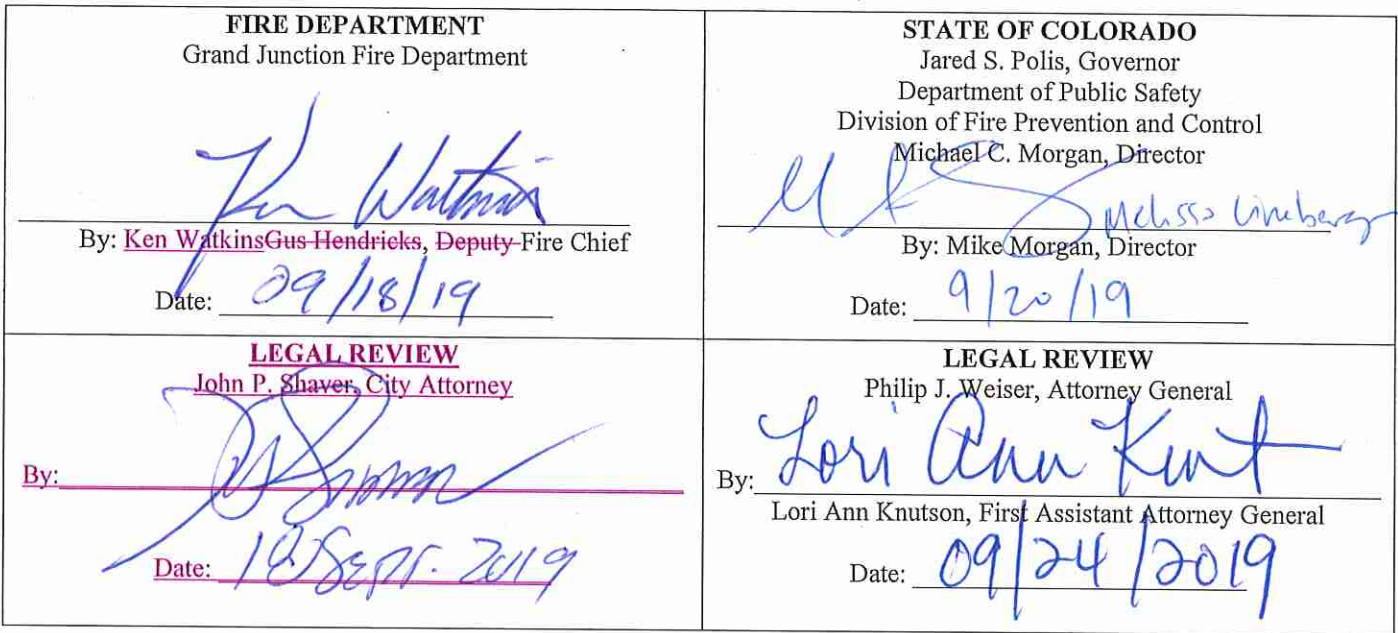 FIRE DEPARTMENT
Grand Junction Fire Department
Ken Watkins
By: Ken WatkinsGus Hendricks, Deputy Fire Chief
Date: 09/18/19
STATE OF COLORADO
Jared S. Polis, Governor
Department of Public Safety
Division of Fire Prevention and Control
Michael C. Morgan, Director
Melissa Lineberger
By: Mike Morgan, Director
Date: 9/20/19
LEGAL REVIEW
John P. Shaver, City Attorney
By:
Date: Sept. 2019
LEGAL REVIEW
Philip J. Weiser, Attorney General
By: Lori Ann Knut
Lori Ann Knutson, First Assistant Attorney General
Date: 09/24/2019